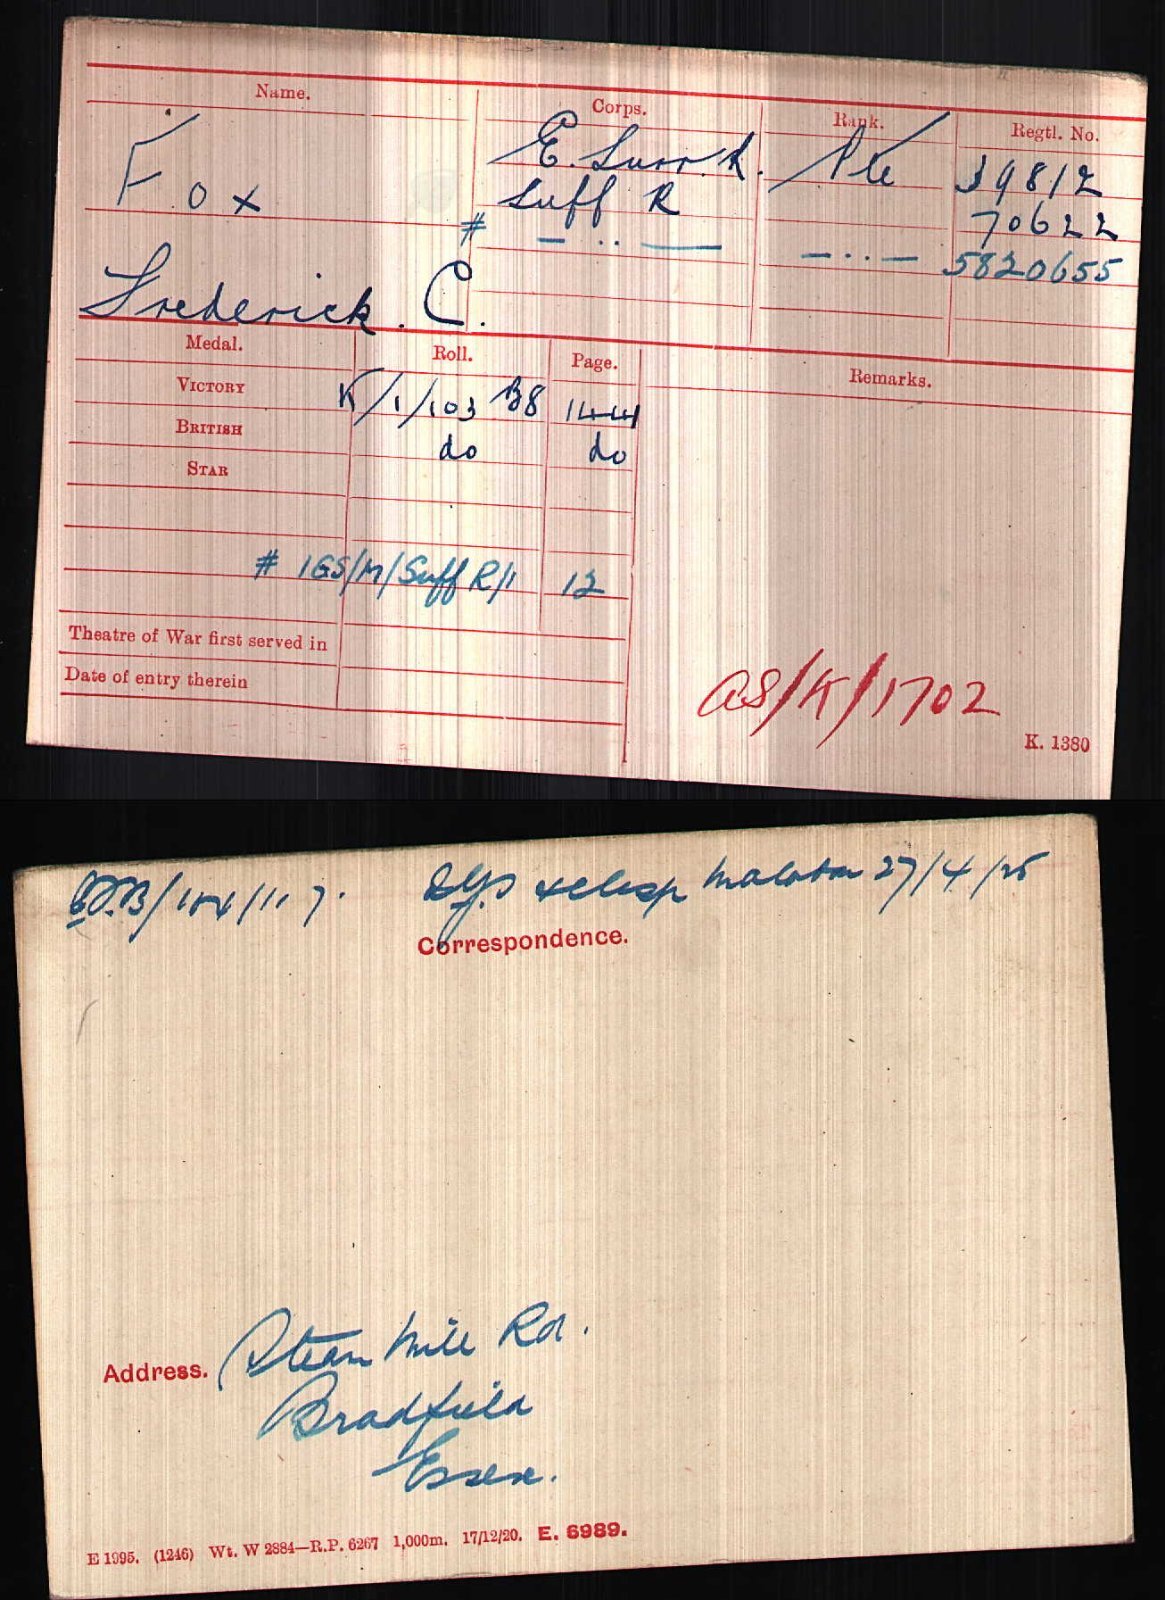 Name. Corps. Rank. Regtl. No.
Fox E. Surr. R. Pte 39812
Suff R 70622
# — .. — — .. — 5820655
Frederick. C.
Medal. Roll. Page. Remarks.
VICTORY K/1/103 B8 1444
BRITISH do do
STAR
# IGS/M/Suff R/1 12
Theatre of War first served in
Date of entry therein
AS/K/1702
K. 1380
& clasp Malabar 27/4/25
Correspondence.
Address. Steam Mill Rd.
Bradfield
Essex.
E 1995. (1246) Wt. W 2884—R.P. 6267 1,000m. 17/12/20. E. 6989.